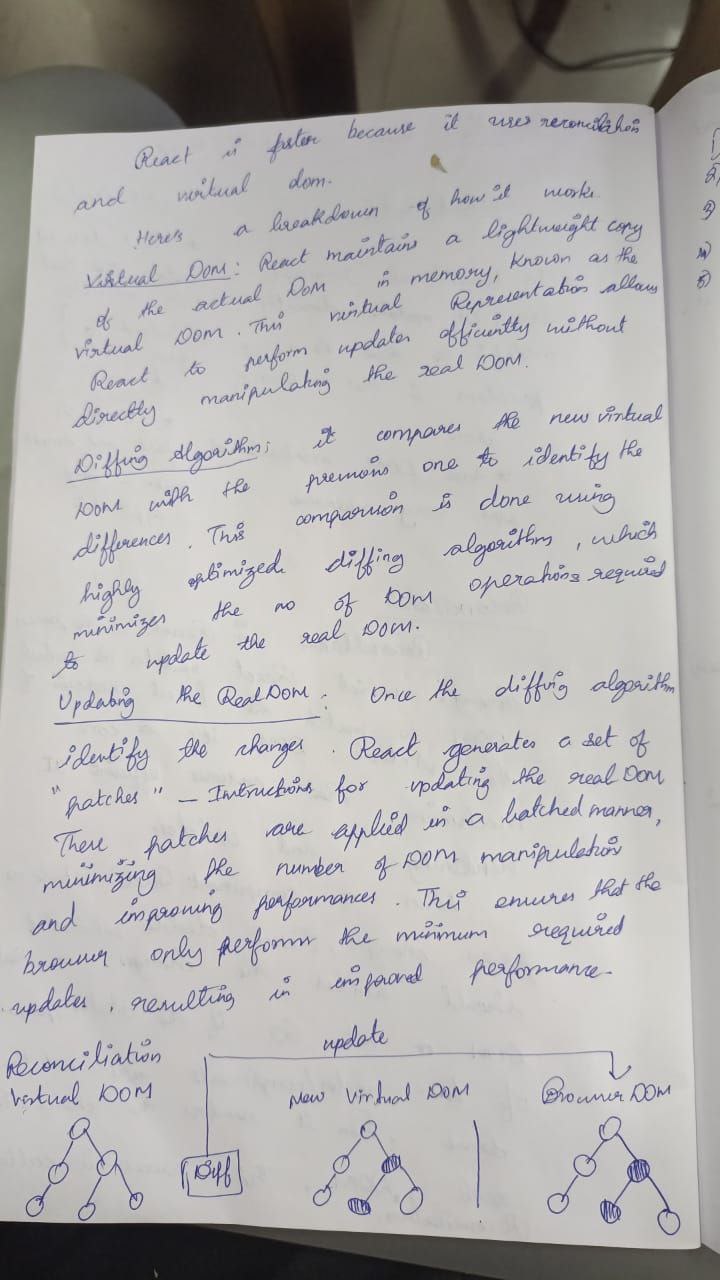 React is faster because it uses reconcilation
and virtual dom.
Here's a breakdown of how it works
Virtual Dom: React maintains a lightweight copy
of the actual Dom in memory, known as the
virtual DOM. This virtual Representation allows
React to perform updates efficiently without
directly manipulating the real DOM.
Diffing Algorithm: it compares the new virtual
DOM with the previous one to identify the
differences. This comparision is done using
highly optimized diffing algorithm, which
minimizes the no of DOM operations required
to update the real DOM.
Updating the Real DOM: Once the diffing algorithm
identify the changes. React generates a set of
"patches" - Instructions for updating the real DOM
These patches are applied in a batched manner,
minimizing the number of DOM manipulation
and improving performances. This ensures that the
browser only performs the minimum required
updates, resulting in improved performance.
update
Reconciliation
Virtual DOM New Virtual DOM Browser DOM
Diff
2)
3)
4)
5)